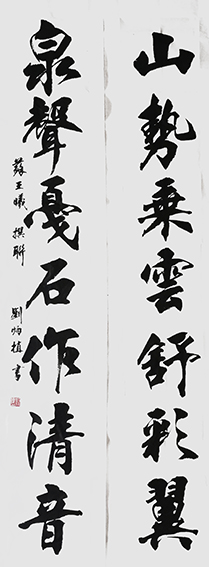 山勢乘雲舒彩翼
泉聲戛石作清音
蘇玉曦撰聯
劉炳植書